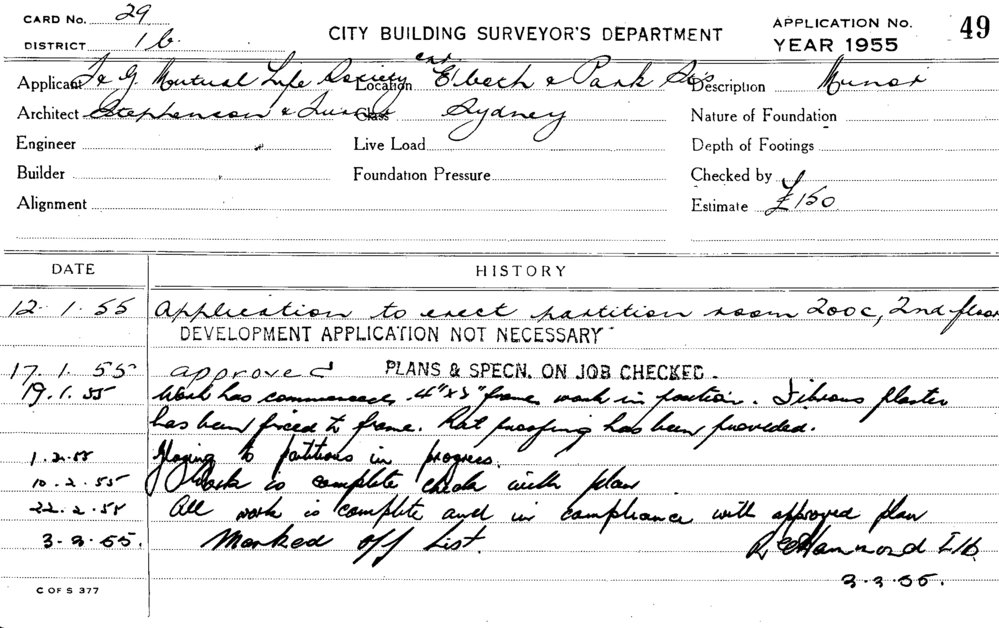 CARD No. 29
DISTRICT 1b.
CITY BUILDING SURVEYOR'S DEPARTMENT
APPLICATION No. 49
YEAR 1955
Applicant T & G Mutual Life Society Location cnr. Elbeth & Park Sts Description Minor
Architect Stephenson & Turner Class Sydney Nature of Foundation
Engineer Live Load Depth of Footings
Builder Foundation Pressure Checked by
Alignment Estimate £150
DATE HISTORY
12.1.55 Application to erect partition room 200c, 2nd floor
DEVELOPMENT APPLICATION NOT NECESSARY
17.1.55 approved PLANS & SPECN. ON JOB CHECKED.
19.1.55 Work has commenced. 4"x3" frame work in position. Fibrous plaster
has been fixed to frame. Rat proofing has been provided.
1.2.55 Glazing to partitions in progress.
10.2.55 Work is complete check with plan
22.2.55 All work is complete and in compliance with approved plan
3.3.55. Marked off List. Hammond
3.3.55.
C OF S 377